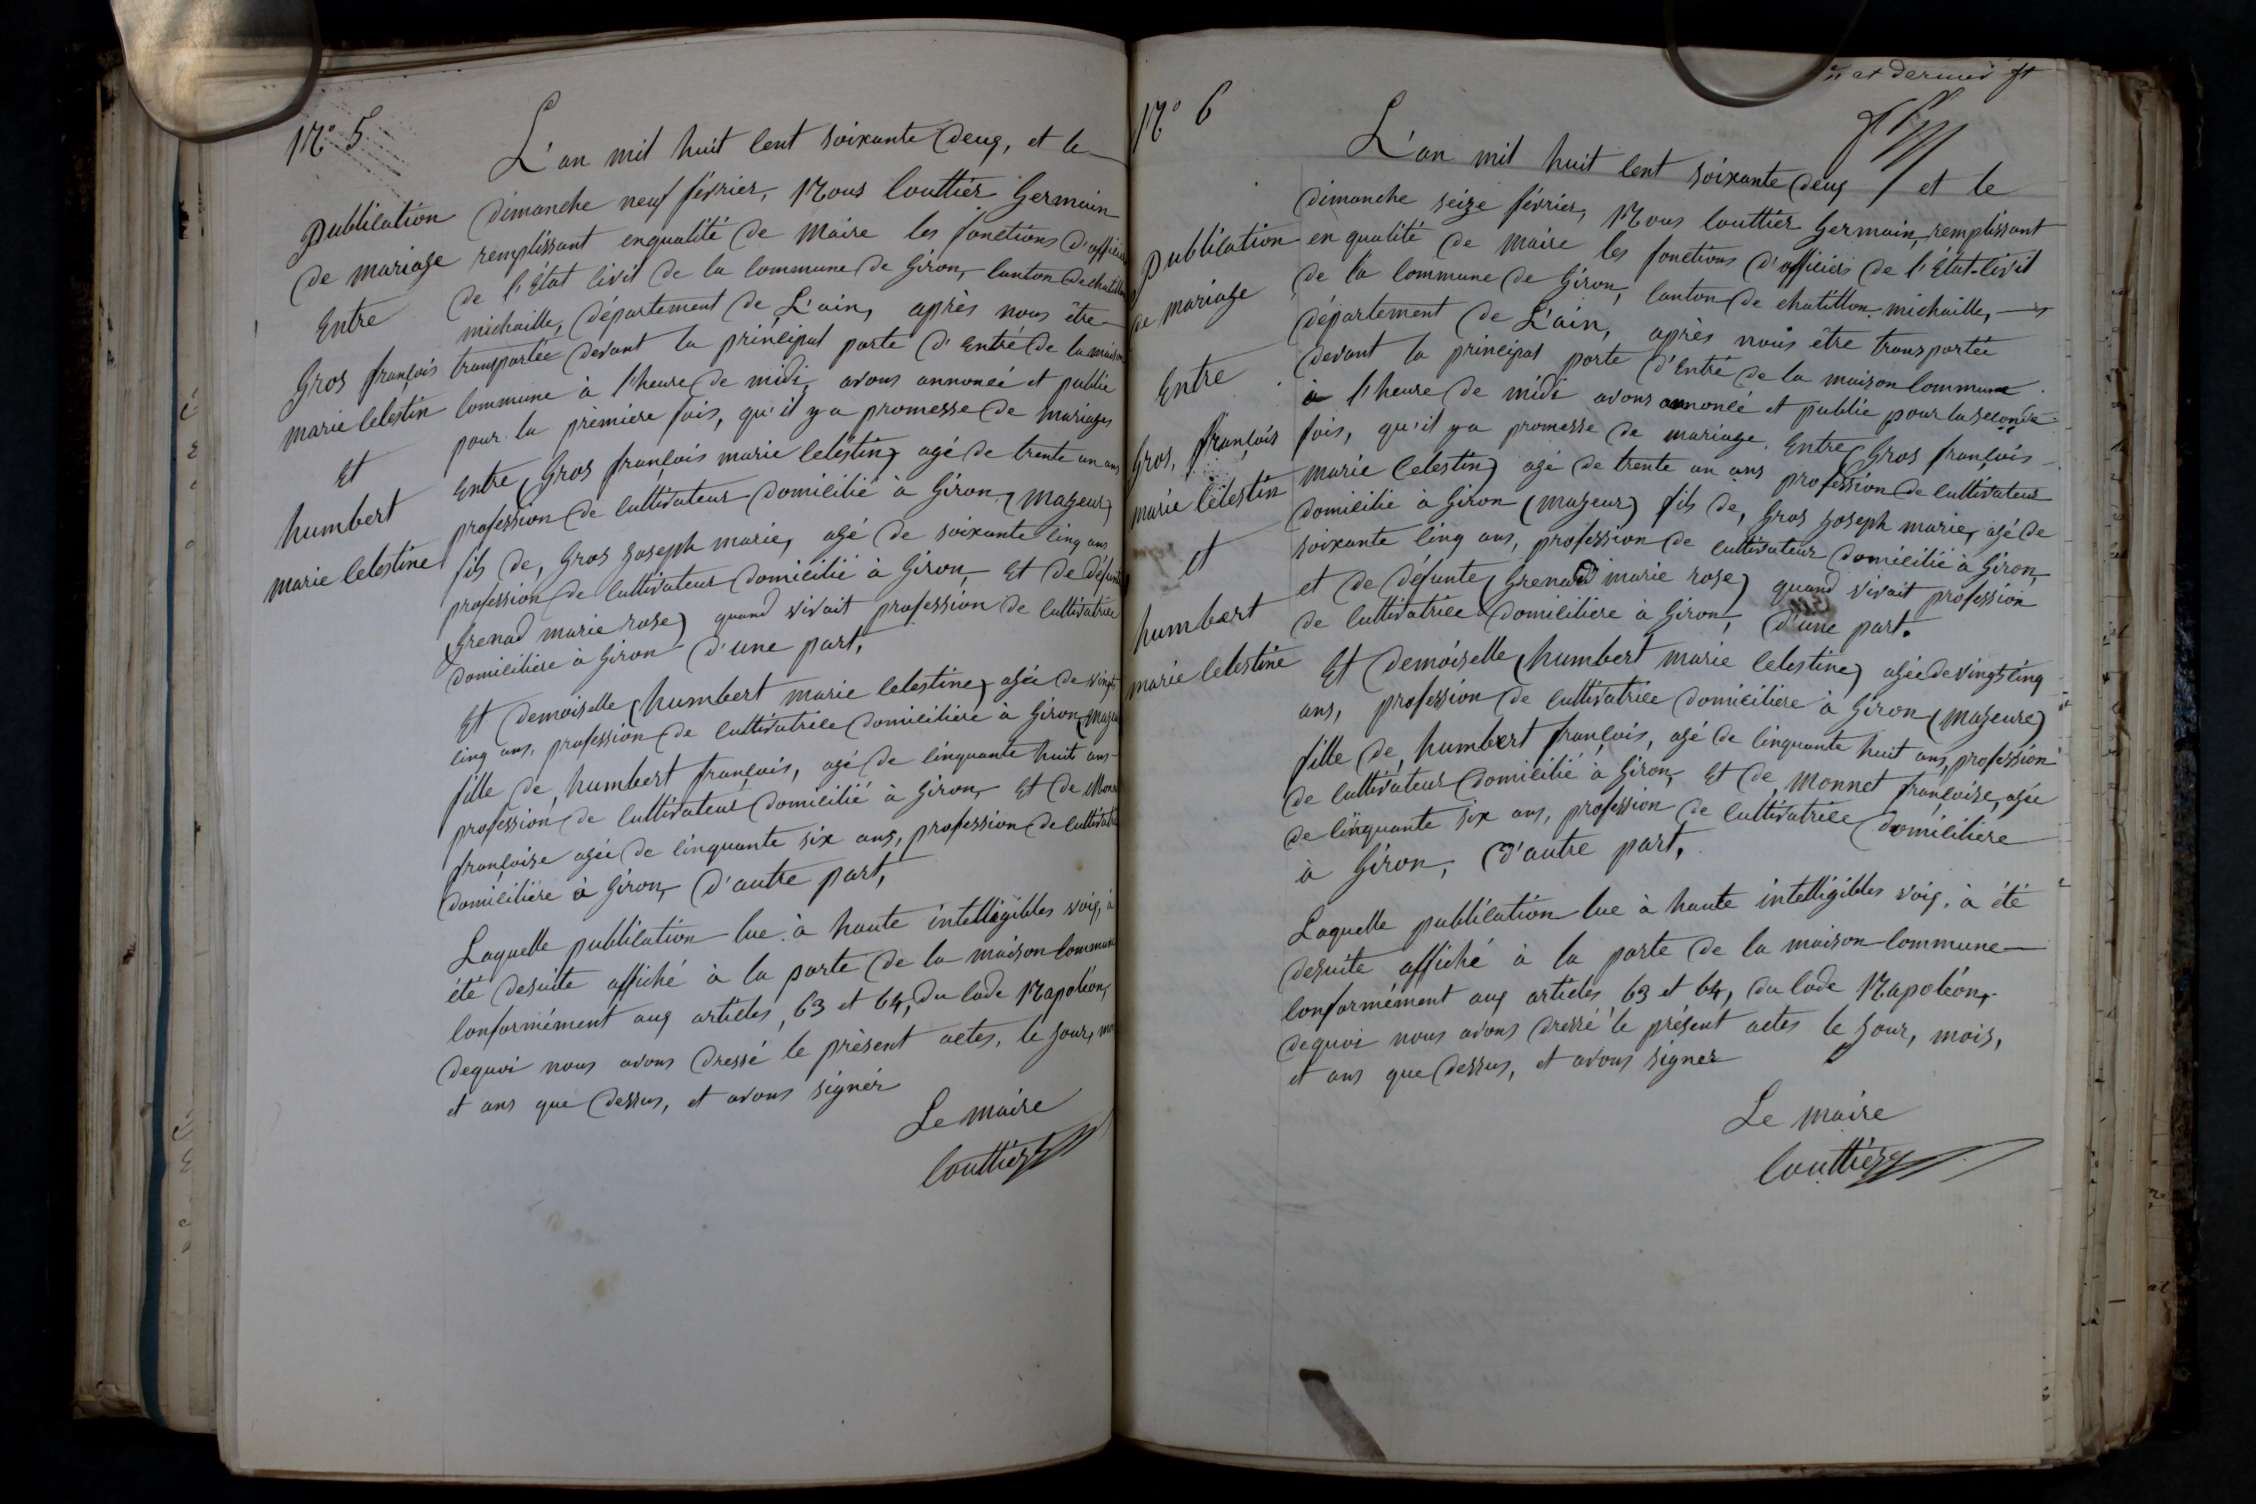 N.o 5
Publication
de mariage
Entre
Gros françois
marie Celestin
Et
humbert
marie Celestine
L'an mil huit Cent soixante deux, et le
dimanche neuf février, Nous Coutier Germain
remplissant enqualité de Maire les fonctions d'officier
de l'Etat Civil de la Commune de Giron, Canton de chatillon
michaille, département de L'ain, après nous être
transportée devant la principal porte d'Entré de la maison
Commune à l'heure de midi, avons annoncé et publie
pour la première fois, qu'il y a promesse de mariages
Entre (Gros françois marie Celestin) agé de trente un ans
profession de Cultivateur domicilié à Giron (mageur)
fils de, Gros Joseph marie, agé de soixante Cinq ans
profession de Cultivateur domicilié à Giron, Et de défunte
(Grenad marie rose) quand vivait profession de Cultivatrice
domiciliere à Giron d'une part,
Et demoiselle (humbert marie Celestine) agée de vingt
Cinq ans, profession de Cultivatrice domiciliere à Giron (mageu
fille de, humbert françois, agé de Cinquante huit ans
profession de Cultivateur domicilié à Giron, Et de Monn
françoise agée de Cinquante six ans, profession de Cultivatri
domiciliere à Giron, d'autre part,
Laquelle publication lue à haute intelligibles voix, à
été desuite affiché à la porte de la maison Commune
Conformément aux articles, 63 et 64, du Code Napoléon,
dequoi nous avons dressé le présent actes, le jour, mo
et ans que dessus, et avons signér
Le maire
Couttier
N.o 6
Publication
de mariage
Entre
Gros, françois
marie Celestin
et
humbert
marie Celestine
et dernier ft
L'an mil huit Cent soixante deux et le
dimanche seize février, Nous Couttier Germain, remplissant
en qualité de maire les fonctions d'officiers de l'Etat-Civil
de la Commune de Giron, Canton de chatillon-michaille,
département de L'ain, après nous être transportée
devant la principal porte d'Entré de la maison Commune
à l'heure de midi avons annoncé et publie pour la seconde
fois, qu'il y a promesse de mariage. Entre (Gros françois
marie Celestin) agé de trente un ans profession de Cultivateur
domicilié à Giron (mageur) fils de, Gros Joseph marie, agé de
soixante Cinq ans, profession de Cultivateur domicilié à Giron,
et de défunte (Grenad marie rose) quand vivait profession
de Cultivatrice domiciliere à Giron, d'une part.
Et demoiselle (humbert marie Celestine) agée de vingt Cinq
ans, profession de Cultivatrice domiciliere à Giron (mageure)
fille de, humbert françois, agé de Cinquante huit ans, profession
de Cultivateur domicilié à Giron, Et de, Monnet françoise, agée
de Cinquante six ans, profession de Cultivatrice domiciliere
à Giron, d'autre part,
Laquelle publication lue à haute intelligibles voix, à été
desuite affiché à la porte de la maison Commune
Conformément aux articles 63 et 64, du Code Napoléon,
dequoi nous avons dressé le présent actes le jour, mois,
et ans que dessus, et avons signer
Le maire
Couttier